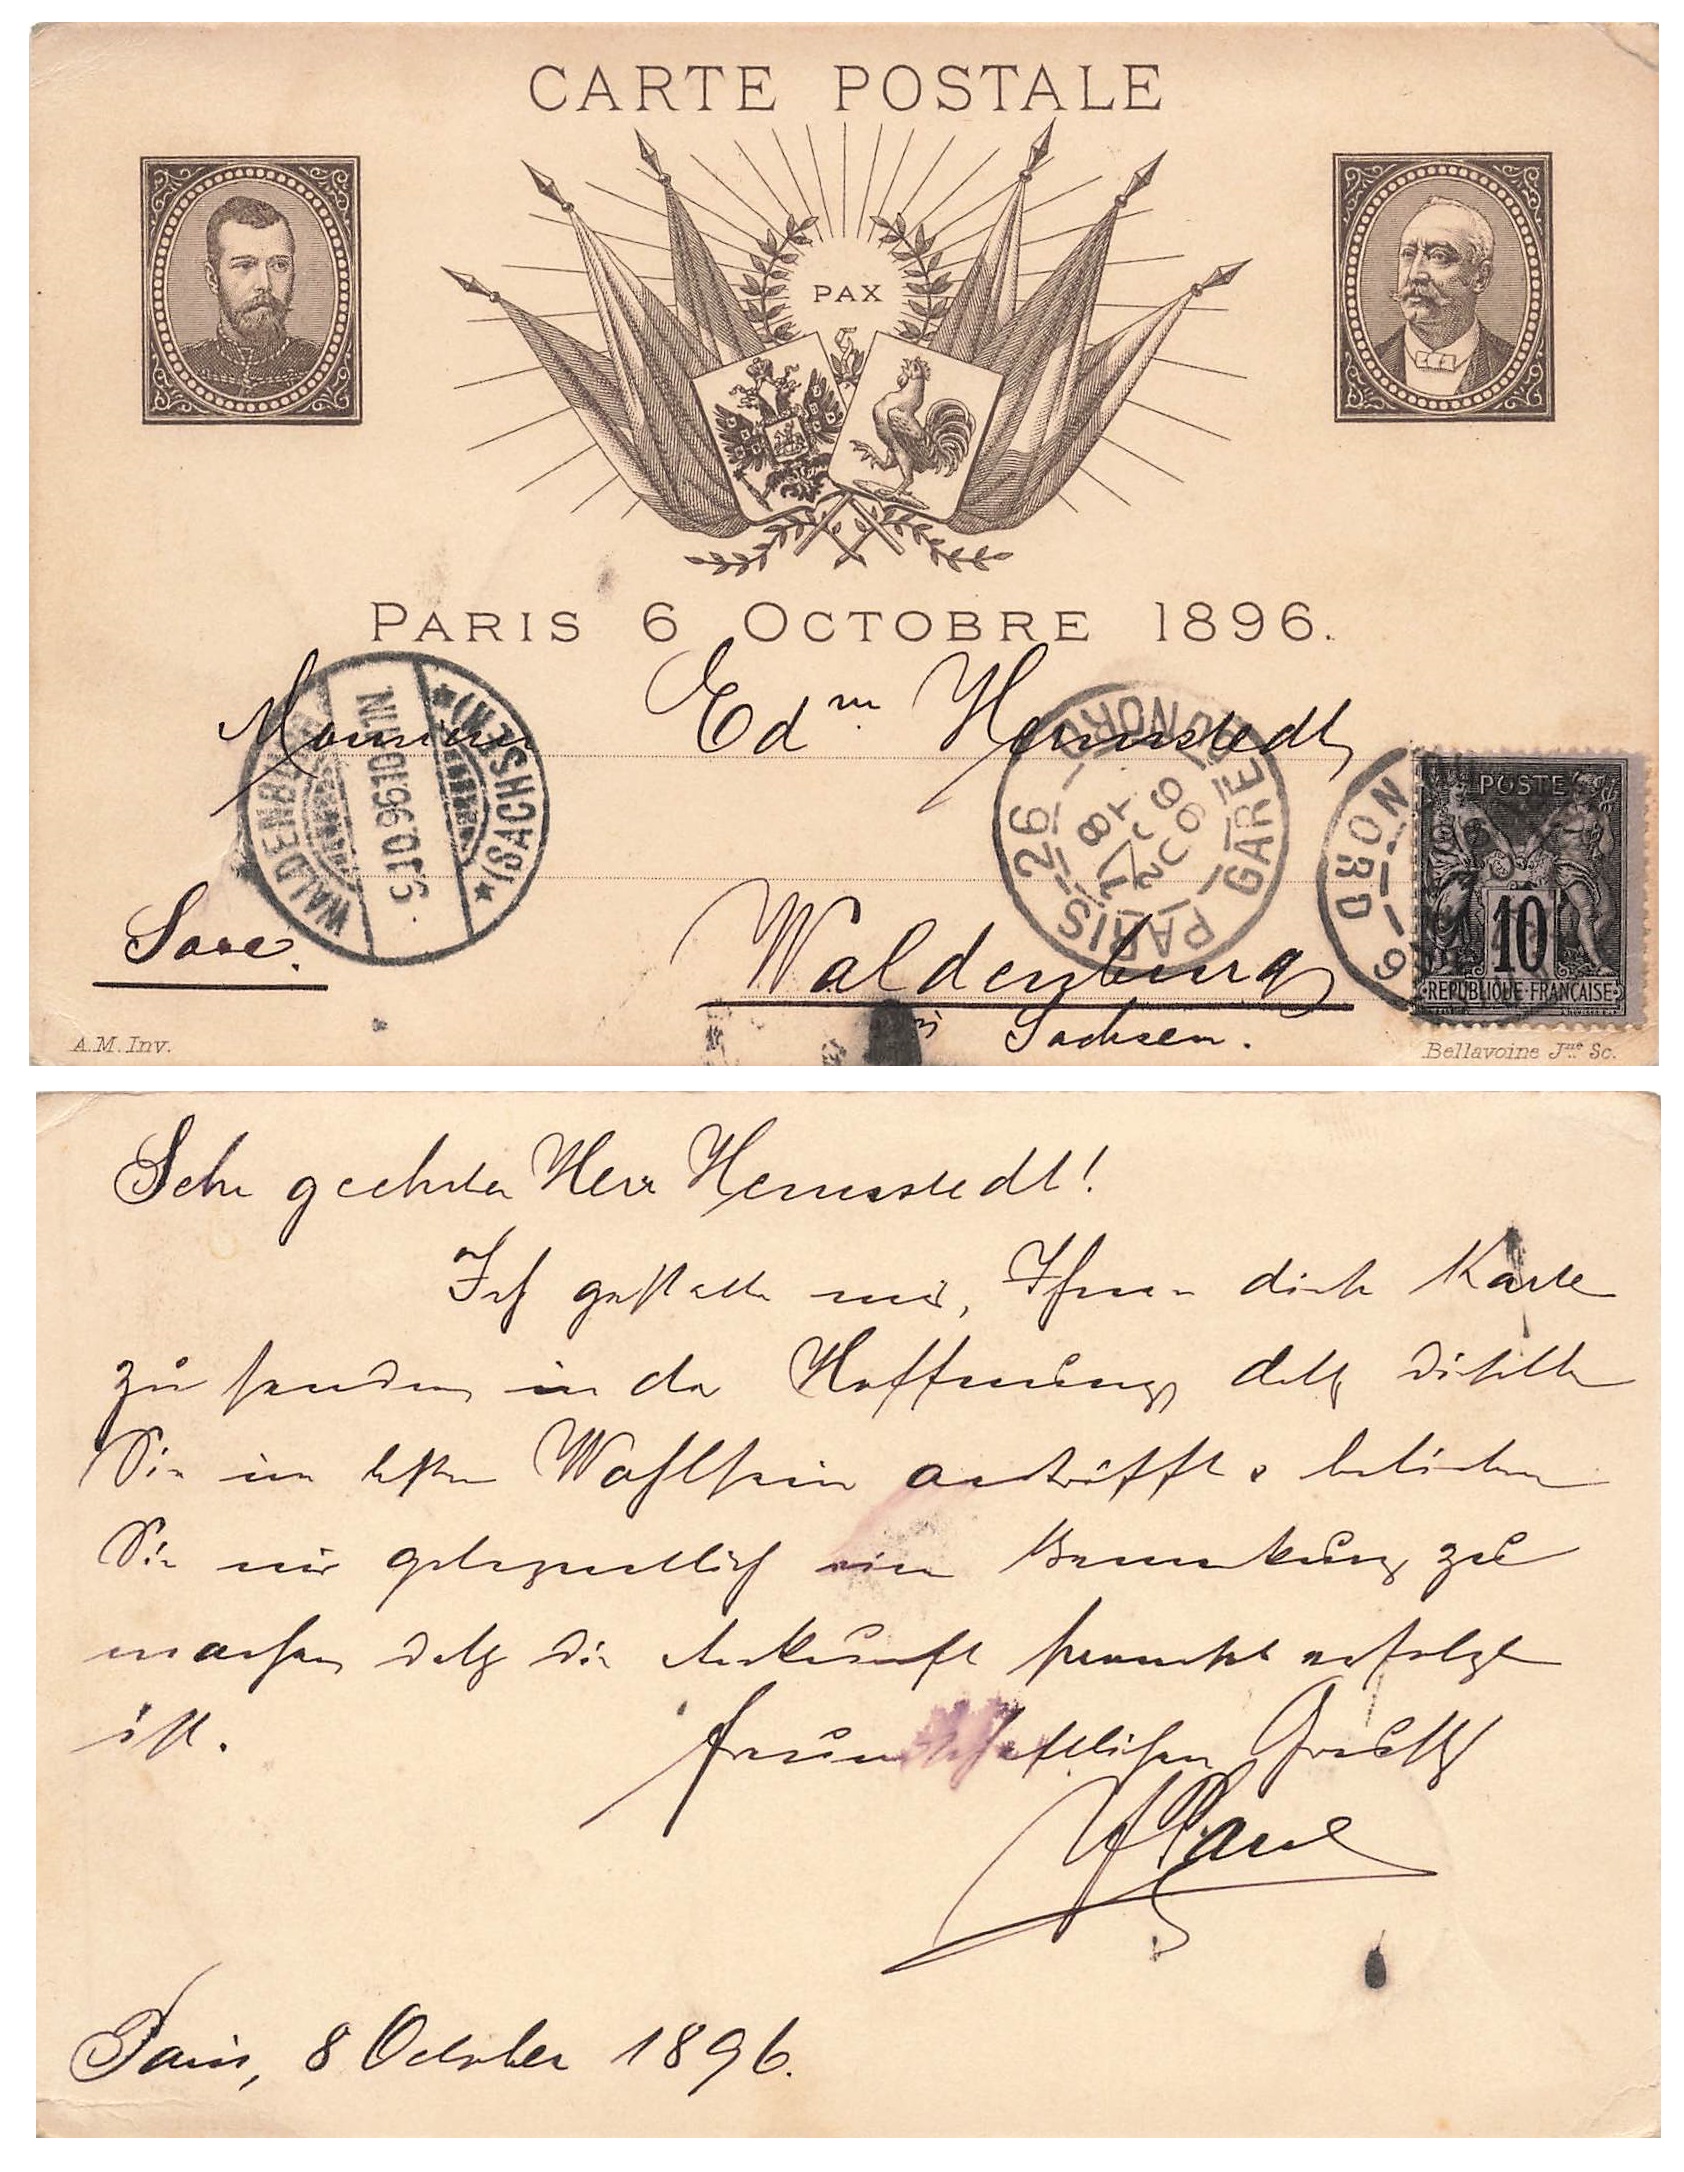 CARTE POSTALE
PAX
PARIS 6 OCTOBRE 1896.
Monsieur Edm Hermstedt,
WALDENBURG
(SACHSEN)
9.10.96.10-11N.
PARIS GARE DU NORD
26
8 OCT
96
NORD
POSTE
10
REPUBLIQUE FRANÇAISE
Saxe.
Waldenburg
Sachsen.
A.M. Inv.
Bellavoine Jne Sc.
Sehr geehrter Herr Hermstedt!
Ich gestatte mir, Ihnen diese Karte
zu senden in der Hoffnung daß dieselbe
Sie im besten Wohlsein antrifft & belieben
Sie mir gelegentlich eine Bemerkung zu
machen daß die Ankunft erfolgt
ist. freundschaftlichen Gruß
Paris, 8 October 1896.